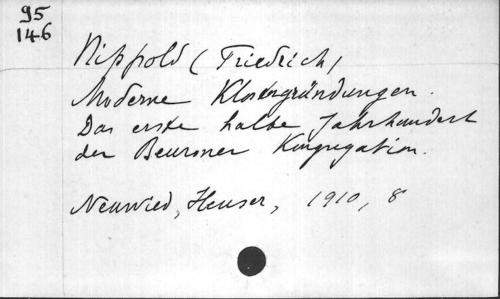 95
146
Nippold (Friedrich)
Moderne Klostergründungen.
Das erste halbe Jahrhundert
der Beuroner Kongregation.
Neuwied, Heuser, 1910, 8°